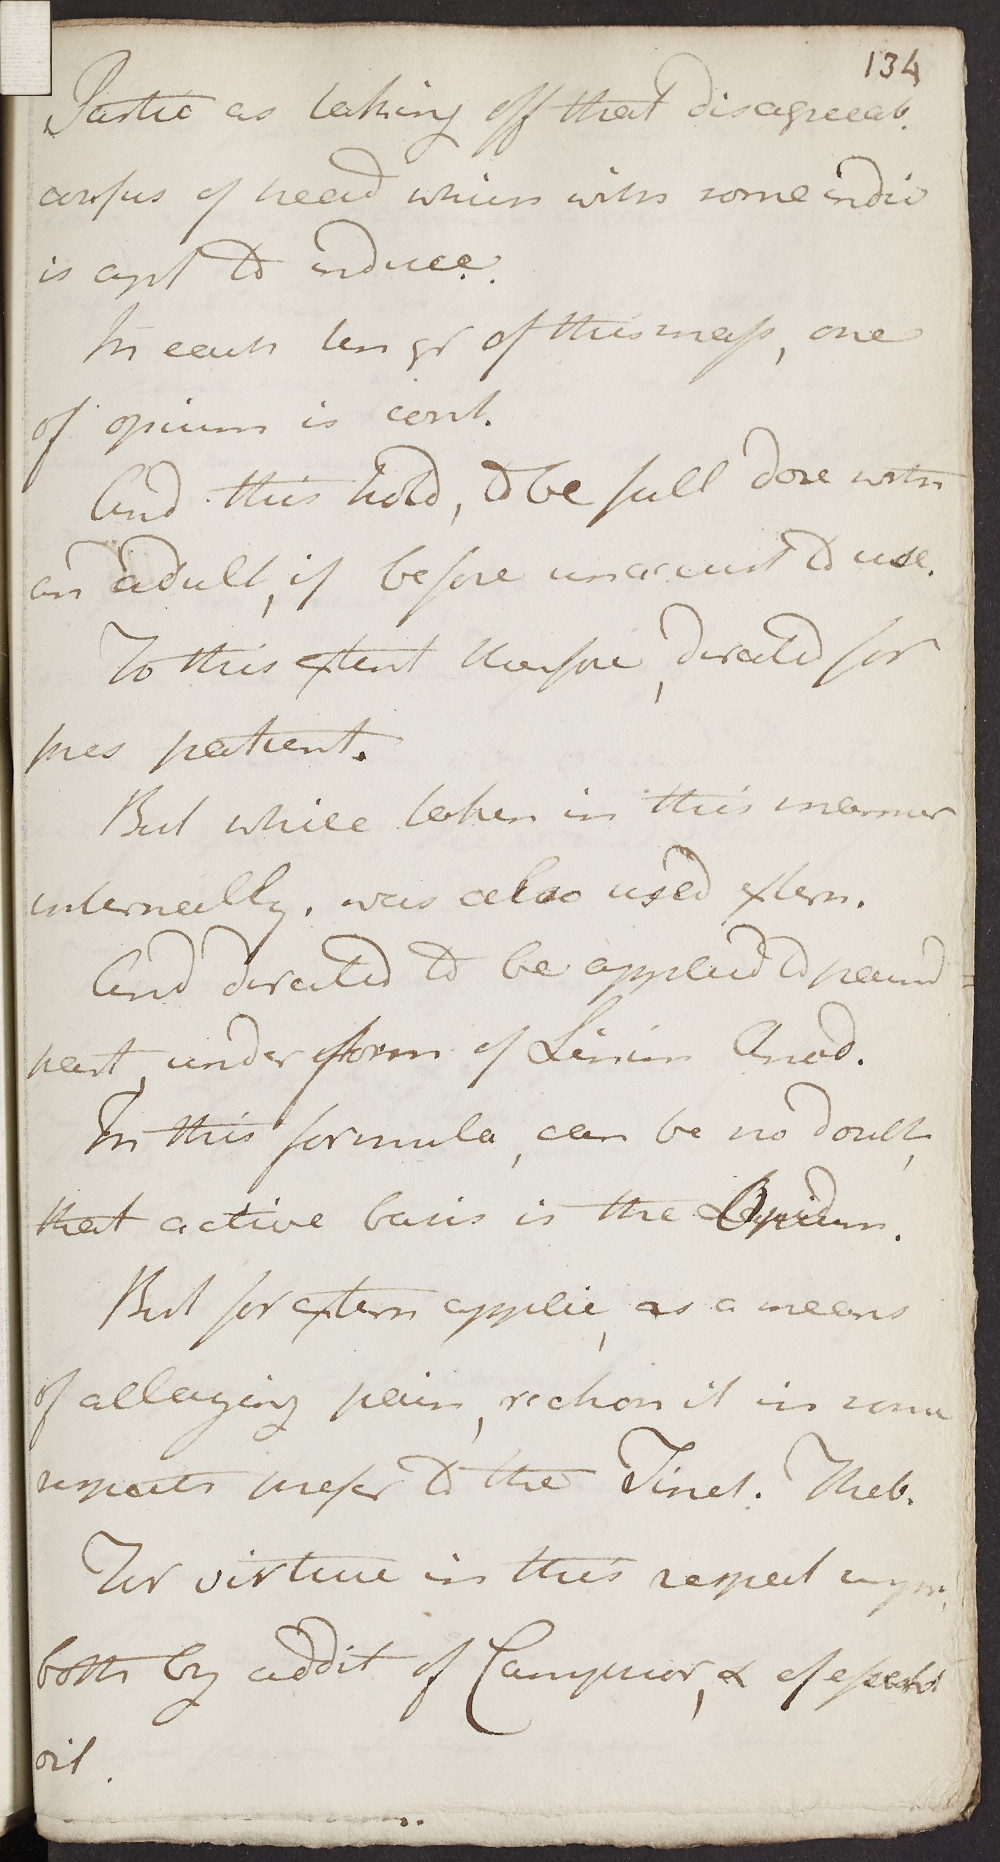 134
Partic as taking off that disagreeab.
confus of head which with some indiv
is apt to induce.
In each ten gr of this mass, one
of opium is cont.
And this hold, to be full dose with
an adult, if before unaccust to use.
To this extent therefore, directed for
pres patient.
But while taken in this manner
internally. was also used extern.
And directed to be applied to paind
part, under form of Linim Anod.
In this formula, can be no doubt,
that active basis is the Opium.
But for extern applic, as a means
of allaying pain, reckon it in some
respects prefer to the Tinct. Theb.
For virtue in this respect
both by addit of Camphor, & of essent
oil.